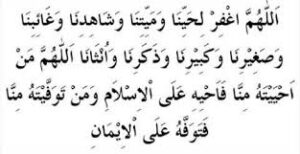 اَللّٰهُمَّ اغْفِرْ لِحَيِّنَا وَمَيِّتِنَا وَشَاهِدِنَا وَغَائِبِنَا
وَصَغِيْرِنَا وَكَبِيْرِنَا وَذَكَرِنَا وَاُنْثَانَا اَللّٰهُمَّ مَنْ
اَحْيَيْتَهُ مِنَّا فَاَحْيِهِ عَلَى الْاِسْلَامِ وَمَنْ تَوَفَّيْتَهُ مِنَّا
فَتَوَفَّهُ عَلَى الْاِيْمَانِ